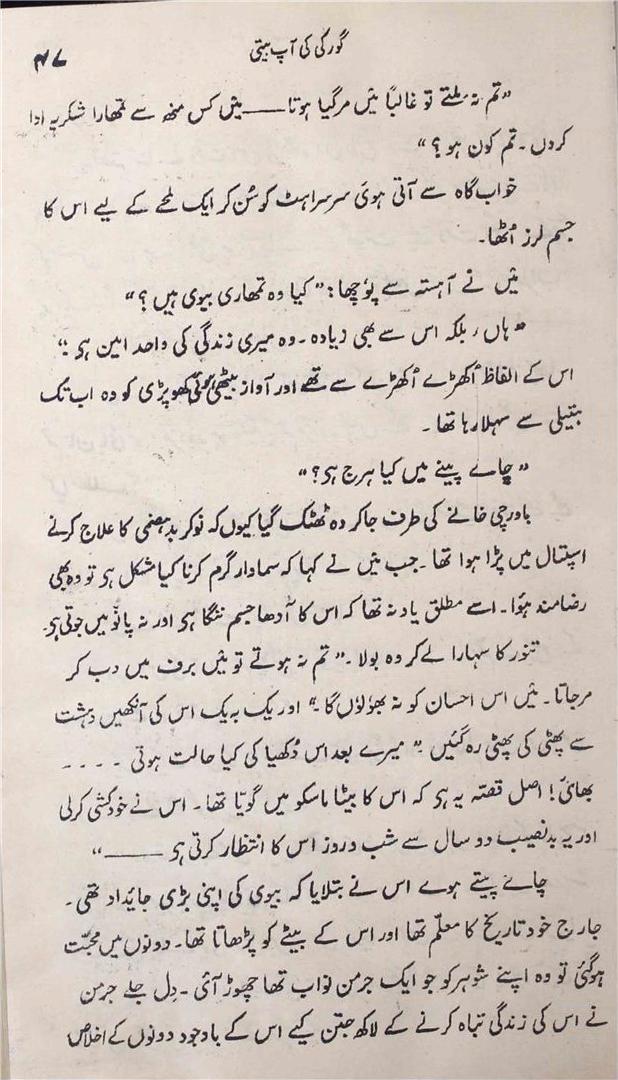 گورکی کی آپ بیتی
۴۷
”تم نہ ملتے تو غالباً میں مرگیا ہوتا——میں کس منھ سے تمھارا شکریہ ادا
کروں۔ تم کون ہو؟“
خواب گاہ سے آتی ہوئی سرسراہٹ کو سُن کر ایک لمحے کے لیے اس کا
جسم لرز اُٹھا۔
میں نے آہستہ سے پوٗچھا: ”کیا وہ تمھاری بیوی ہیں؟“
”ہاں، بلکہ اس سے بھی زیادہ۔ وہ میری زندگی کی واحد امین ہی۔“
اس کے الفاظ اُکھڑے اُکھڑے سے تھے اور آواز بیٹھی ہوئی کھوپڑی کو وہ اب تک
ہتیلی سے سہلا رہا تھا۔
”چاے پینے میں کیا ہرج ہی؟“
باورچی خانے کی طرف جاکر وہ ٹھٹک گیا کیوں کہ نوکر بدہضمی کا علاج کرنے
اسپتال میں پڑا ہوا تھا۔ جب میں نے کہا کہ سماوار گرم کرنا کیا مشکل ہی تو وہ بھی
رضامند ہوٗا۔ اسے مطلق یاد نہ تھا کہ اس کا آدھا جسم ننگا ہی اور نہ پانوٗ میں جوتی ہی۔
تنور کا سہارا لے کر وہ بولا۔ ”تم نہ ہوتے تو میں برف میں دب کر
مرجاتا۔ میں اس احسان کو نہ بھوٗلوں گا۔“ اور یک بہ یک اس کی آنکھیں دہشت
سے پھٹی کی پھٹی رہ گئیں۔ ”میرے بعد اس دُکھیا کی کیا حالت ہوتی ....
بھائی! اصل قصّہ یہ ہی کہ اس کا بیٹا ماسکو میں گویّا تھا۔ اس نے خودکشی کرلی
اور یہ بدنصیب دو سال سے شب و روز اس کا انتظار کرتی ہی ——“
چاے پیتے ہوے اس نے بتلایا کہ بیوی کی اپنی بڑی جائداد تھی۔
جارج خود تاریخ کا معلّم تھا اور اس کے بیٹے کو پڑھاتا تھا۔ دونوں میں محبّت
ہوگئی تو وہ اپنے شوہر کو جو ایک جرمن نواب تھا چھوڑ آئی۔ دِل جلے جرمن
نے اس کی زندگی تباہ کرنے کے لاکھ جتن کیے اس کے باوجود دونوں کے اخلاص